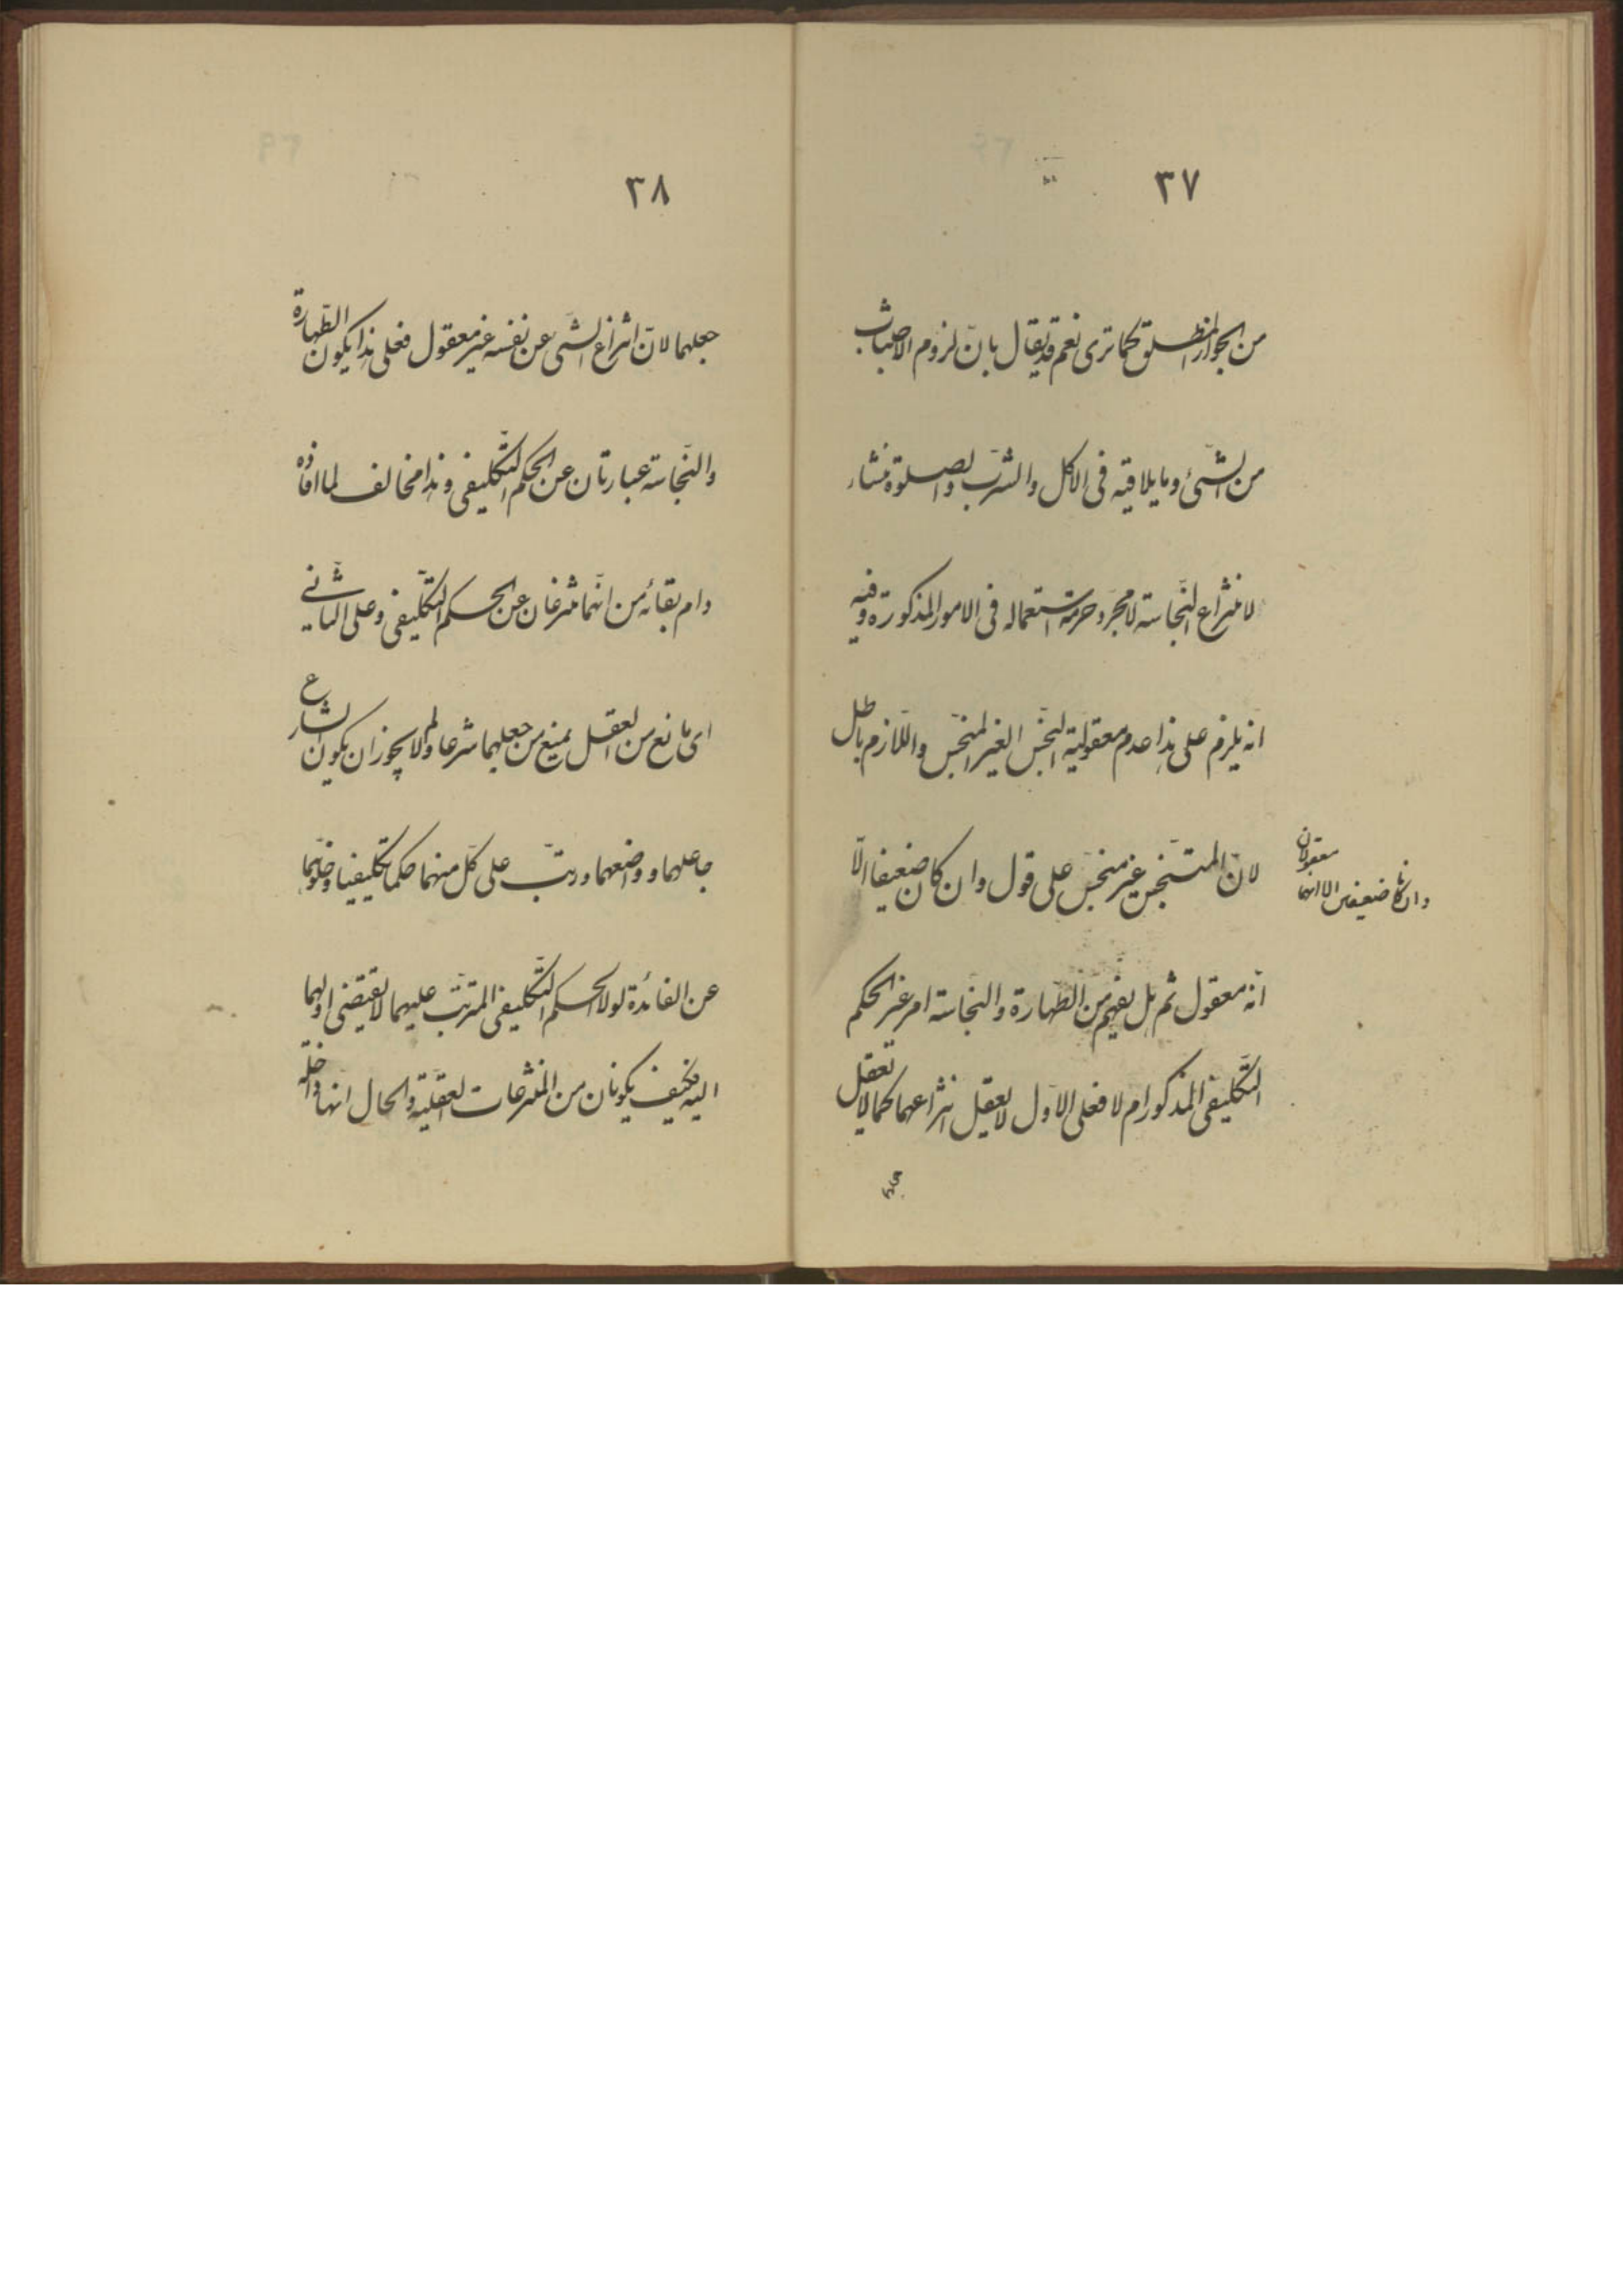 ٣٧
من الجواز المطلق كما ترى نعم قد يقال بانّ لزوم الاجتناب
من الشّئ وما يلاقيه فى الاكل والشّرب والصلوة منشاء
لانتزاع النّجاسة لا مجرّد حرمة استعماله فى الامور المذكورة وفيه
انّه يلزم على هذا عدم معقوليّة النّجس الغير المنجّس واللّازم باطل
لانّ المتنجّس غير منجّس على قول وان كان ضعيفا الّا
وان كانا ضعيفين الا انهما
معقولان
انّه معقول ثم هل يفهم من الطّهارة والنّجاسة امر غير الحكم
التّكليفى المذكور ام لا فعلى الاوّل لا يعقل انتزاعهما كما لا تعقل
٣٨
جعلهما لانّ انتزاع الشّئ عن نفسه غير معقول فعلى هذا يكون الطّهارة
والنّجاسة عبارتان عن الحكم التّكليفى وهذا مخالف لما افاده
دام بقائه من انّهما منتزعان عن الحكم التّكليفى وعلى الثّانى
اى مانع من العقل يمنع من جعلهما شرعا ولم لا يجوز ان يكون الشارع
جاعلهما وواضعهما ورتّب على كلّ منهما حكما تكليفيا وخلوّهما
عن الفائدة لولا الحكم التّكليفى المترتّب عليهما لا يقتضى اولهما
اليه فكيف يكونان من المنتزعات العقليّة والحال انّها داخلة